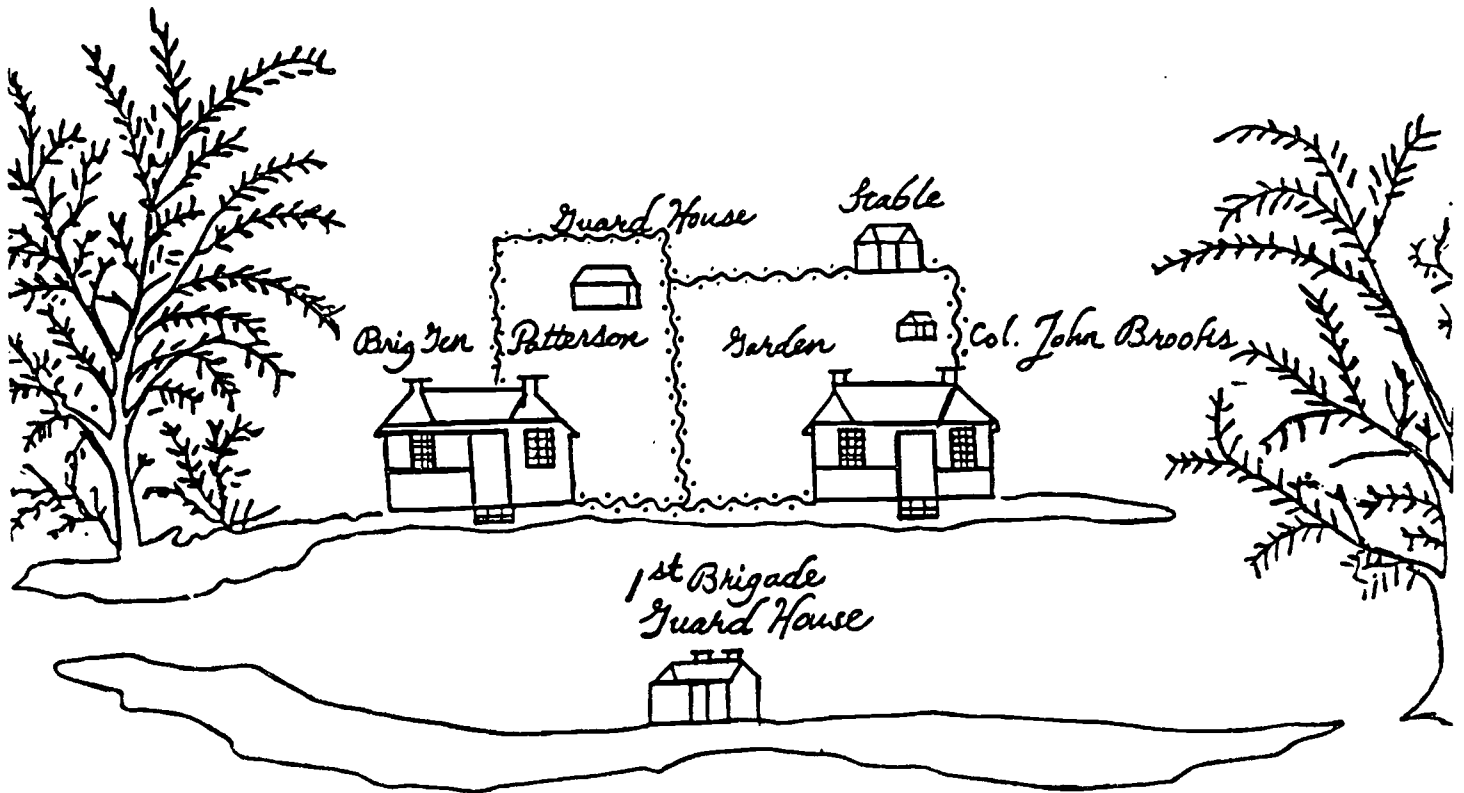 Stable
Guard House
Brig Gen Patterson
Garden
Col. John Brooks
1st Brigade
Guard House